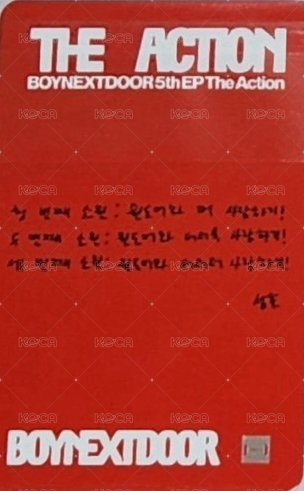 THE ACTION
BOYNEXTDOOR 5th EP The Action
첫 번째 소원 : 원도어랑 더 사랑하기!
두 번째 소원 : 원도어랑 더더욱 사랑하기!
세 번째 소원 : 원도어랑 사랑하기!
성호
BOYNEXTDOOR
KOCA